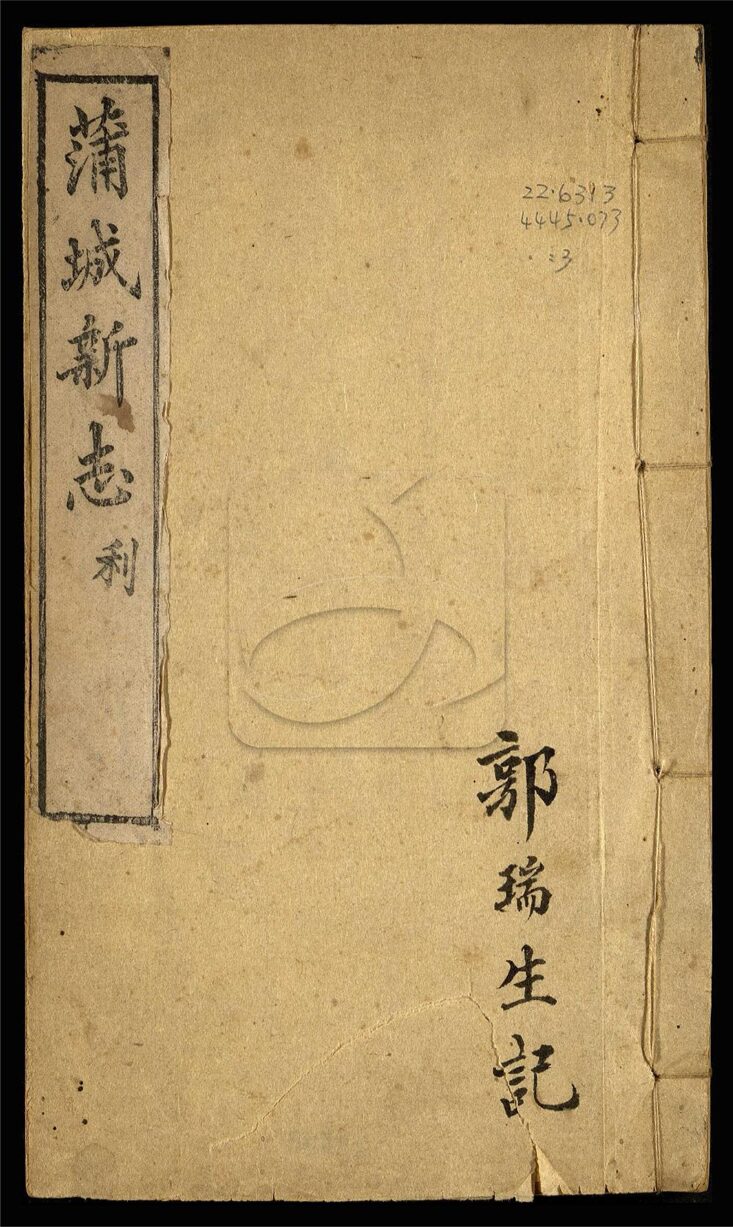 22·6313
4445·073
:3
郭瑞生記
蒲城新志 利